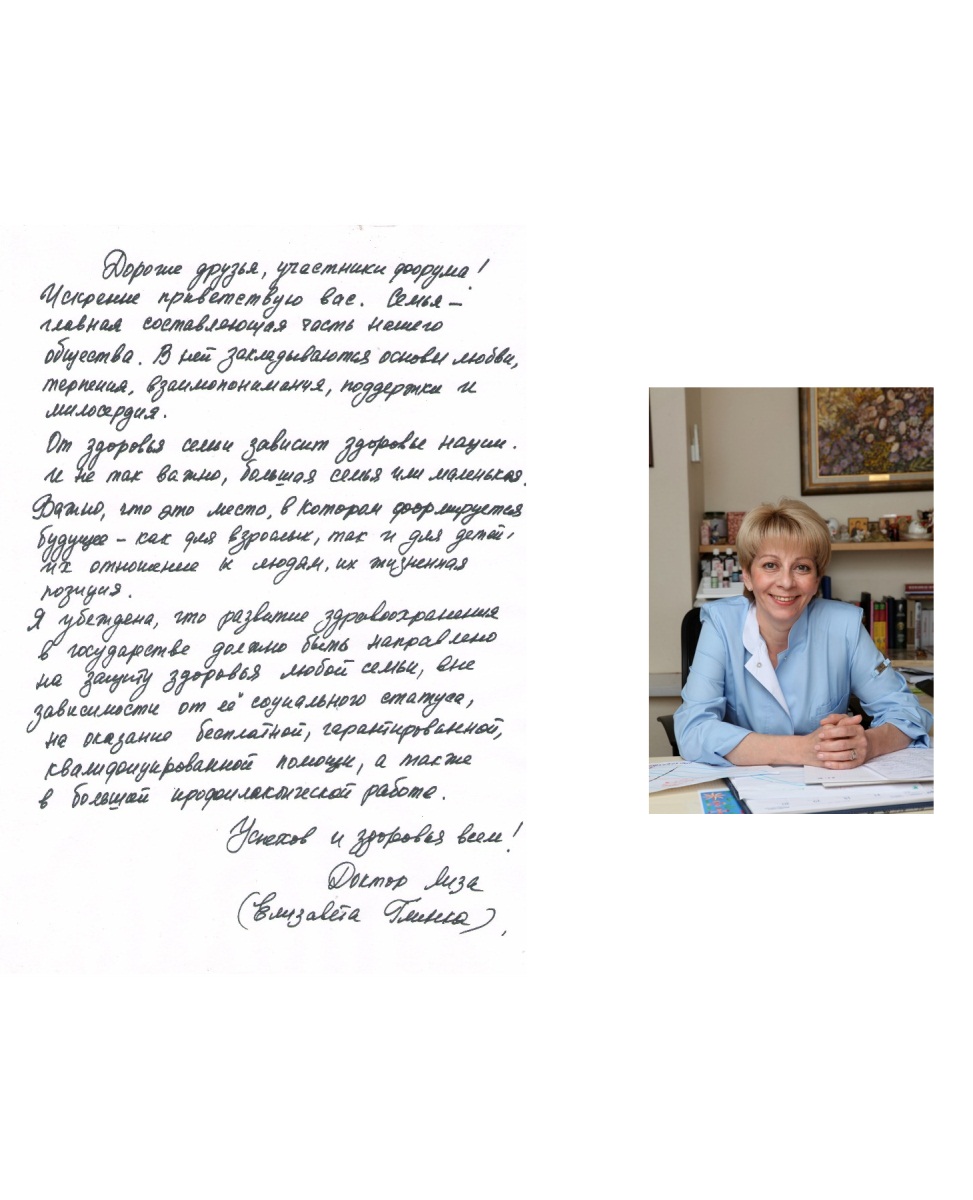 Дорогие друзья, участники форума!
Искренне приветствую вас. Семья –
главная составляющая часть нашего
общества. В ней закладываются основы любви,
терпения, взаимопонимания, поддержки и
милосердия.
От здоровья семьи зависит здоровье нации.
И не так важно, большая семья или маленькая.
Важно, что это место, в котором формируется
будущее – как для взрослых, так и для детей,
их отношение к людям, их жизненная
позиция.
Я убеждена, что развитие здравоохранения
в государстве должно быть направлено
на защиту здоровья любой семьи, вне
зависимости от её социального статуса,
на оказание бесплатной, гарантированной,
квалифицированной помощи, а также
в большой профилактической работе.
Успехов и здоровья всем!
Доктор Лиза
(Елизавета Глинка)